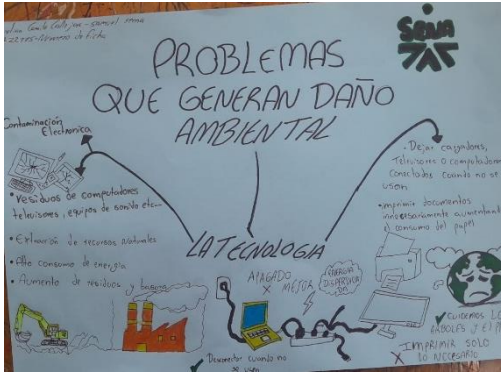 Camilo
SENA
PROBLEMAS
QUE GENERAN DAÑO
AMBIENTAL
Contaminación
Electronica
• residuos de computadores
televisores, equipos de sonido etc...
• Extracion de recursos naturales
• Alto consumo de energia
• Aumento de residuos y basura
LA TECNOLOGIA
APAGADO
X MEJOR
ENERGIA
✓ Desconectar cuando no
se usen
• Dejar cargadores,
Televisores o computadores
conectados cuando no se
usen
• imprimir documentos
innecesariamente aumentando
el consumo del papel
✓ CUIDEMOS
ARBOLES y El
X IMPRIMIR SOLO
LO NECESARIO